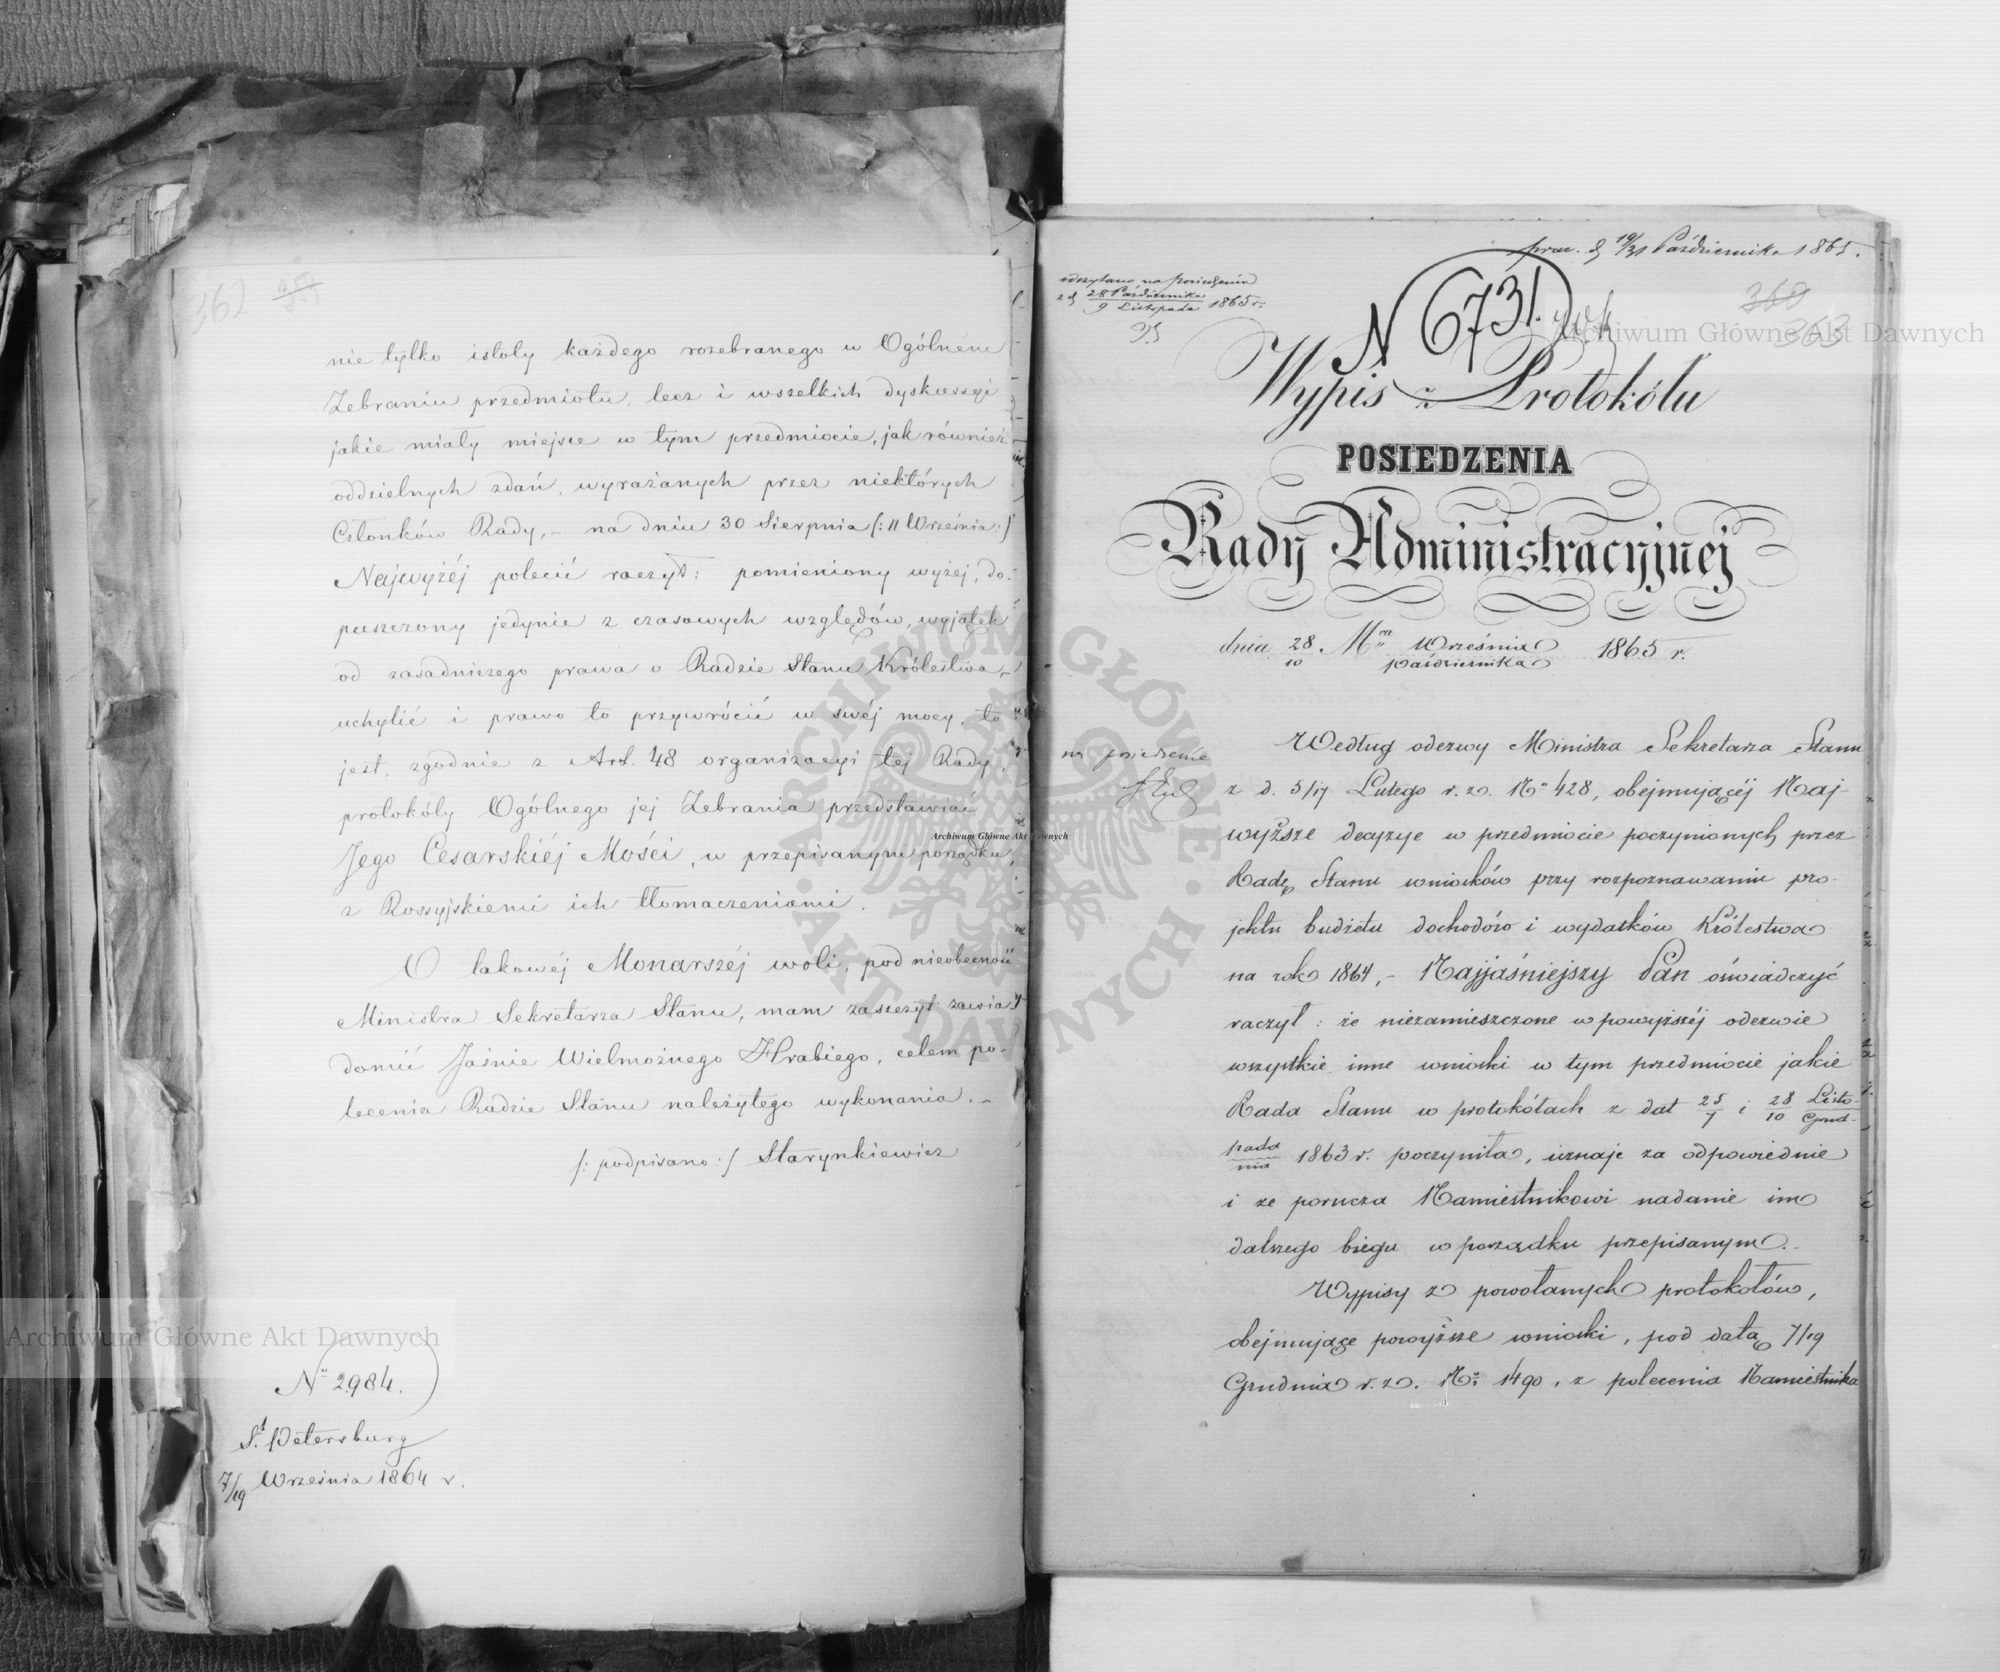 362
nie tylko istoty każdego rozebranego w Ogólném
Zebraniu przedmiotu, lecz i wszelkich dyskussyi
jakie miały miejsce w tym przedmiocie, jak również
oddzielnych zdań, wyrażanych przez niektórych
Członków Rady, – na dniu 30 Sierpnia /: 11 Września :/
Najwyżéj polecić raczył: pomieniony wyżej, do-
puszczony jedynie z czasowych względów, wyjątek
od zasadniczego prawa o Radzie Stanu Królestwa,
uchylić i prawo to przywrócić w swéj mocy, to
jest, zgodnie z Art. 48 organizacyi téj Rady,
protokóły Ogólnego jej Zebrania przedstawiać
Jego Cesarskiéj Mości, w przepisanym porządku,
z Rossyjskiemi ich tłomaczeniami.
O takowéj Monarszéj woli, pod nieobecność
Ministra Sekretarza Stanu, mam zaszczyt zawia-
domić Jaśnie Wielmożnego Hrabiego, celem po-
lecenia Radzie Stanu należytego wykonania. –
/: podpisano :/ Starynkiewicz
No 2984.
St. Petersburg
7/19 Września 1864 r.
prac. d. 19/31 Października 1865.
odczytano na posiedzeniu
z d. 28 Października / 9 Listopada 1865 r.
N 6731.
360
363
Wypis z Protokółu
POSIEDZENIA
Rady Administracyjnej
dnia 28/10 Mca Września/Października 1865 r.
na posiedzenie
Według odezwy Ministra Sekretarza Stanu
z d. 5/17 Lutego r. z. No 428, obejmującéj Naj-
wyższe decyzye w przedmiocie poczynionych przez
Radę Stanu wniosków przy rozpoznawaniu pro-
jektu budżetu dochodów i wydatków Królestwa
na rok 1864, – Najjaśniejszy Pan oświadczyć
raczył: że niezamieszczone w powyższéj odezwie
wszystkie inne wnioski w tym przedmiocie jakie
Rada Stanu w protokółach z dat 25/7 i 28/10 Listo-/Grud-
pada/nia 1863 r. poczyniła, uznaje za odpowiednie
i że porucza Namiestnikowi nadanie im
dalszego biegu w porządku przepisanym. –
Wypisy z powołanych protokołów,
obejmujące powyższe wnioski, pod datą 7/19
Grudnia r. z. No: 1490, z polecenia Namiestnika
Archiwum Główne Akt Dawnych
Archiwum Główne Akt Dawnych
Archiwum Główne Akt Dawnych
ARCHIWUM GŁÓWNE · AKT DAWNYCH ·